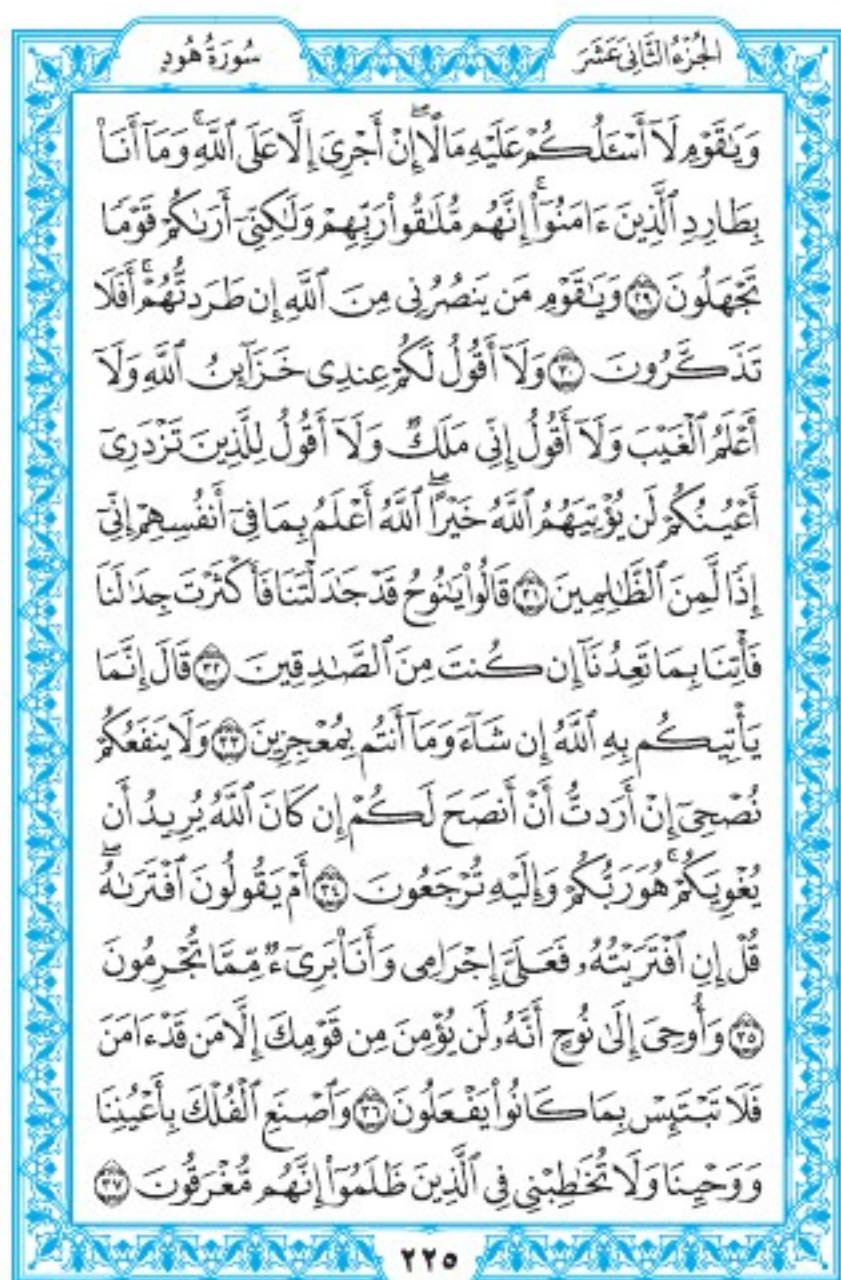 الجُزْءُ الثَّانِيَ عَشَرَ
سُورَةُ هُودٍ
وَيَٰقَوْمِ لَآ أَسْـَٔلُكُمْ عَلَيْهِ مَالًا ۖ إِنْ أَجْرِىَ إِلَّا عَلَى ٱللَّهِ ۚ وَمَآ أَنَا۠
بِطَارِدِ ٱلَّذِينَ ءَامَنُوٓا۟ ۚ إِنَّهُم مُّلَٰقُوا۟ رَبِّهِمْ وَلَٰكِنِّىٓ أَرَىٰكُمْ قَوْمًا
تَجْهَلُونَ ٢٩ وَيَٰقَوْمِ مَن يَنصُرُنِى مِنَ ٱللَّهِ إِن طَرَدتُّهُمْ ۚ أَفَلَا
تَذَكَّرُونَ ٣٠ وَلَآ أَقُولُ لَكُمْ عِندِى خَزَآئِنُ ٱللَّهِ وَلَآ
أَعْلَمُ ٱلْغَيْبَ وَلَآ أَقُولُ إِنِّى مَلَكٌ وَلَآ أَقُولُ لِلَّذِينَ تَزْدَرِىٓ
أَعْيُنُكُمْ لَن يُؤْتِيَهُمُ ٱللَّهُ خَيْرًا ۖ ٱللَّهُ أَعْلَمُ بِمَا فِىٓ أَنفُسِهِمْ إِنِّىٓ
إِذًا لَّمِنَ ٱلظَّٰلِمِينَ ٣١ قَالُوا۟ يَٰنُوحُ قَدْ جَٰدَلْتَنَا فَأَكْثَرْتَ جِدَٰلَنَا
فَأْتِنَا بِمَا تَعِدُنَآ إِن كُنتَ مِنَ ٱلصَّٰدِقِينَ ٣٢ قَالَ إِنَّمَا
يَأْتِيكُم بِهِ ٱللَّهُ إِن شَآءَ وَمَآ أَنتُم بِمُعْجِزِينَ ٣٣ وَلَا يَنفَعُكُمْ
نُصْحِىٓ إِنْ أَرَدتُّ أَنْ أَنصَحَ لَكُمْ إِن كَانَ ٱللَّهُ يُرِيدُ أَن
يُغْوِيَكُمْ ۚ هُوَ رَبُّكُمْ وَإِلَيْهِ تُرْجَعُونَ ٣٤ أَمْ يَقُولُونَ ٱفْتَرَىٰهُ ۖ
قُلْ إِنِ ٱفْتَرَيْتُهُۥ فَعَلَىَّ إِجْرَامِى وَأَنَا۠ بَرِىٓءٌ مِّمَّا تُجْرِمُونَ
٣٥ وَأُوحِىَ إِلَىٰ نُوحٍ أَنَّهُۥ لَن يُؤْمِنَ مِن قَوْمِكَ إِلَّا مَن قَدْ ءَامَنَ
فَلَا تَبْتَئِسْ بِمَا كَانُوا۟ يَفْعَلُونَ ٣٦ وَٱصْنَعِ ٱلْفُلْكَ بِأَعْيُنِنَا
وَوَحْيِنَا وَلَا تُخَٰطِبْنِى فِى ٱلَّذِينَ ظَلَمُوٓا۟ إِنَّهُم مُّغْرَقُونَ ٣٧
٢٢٥